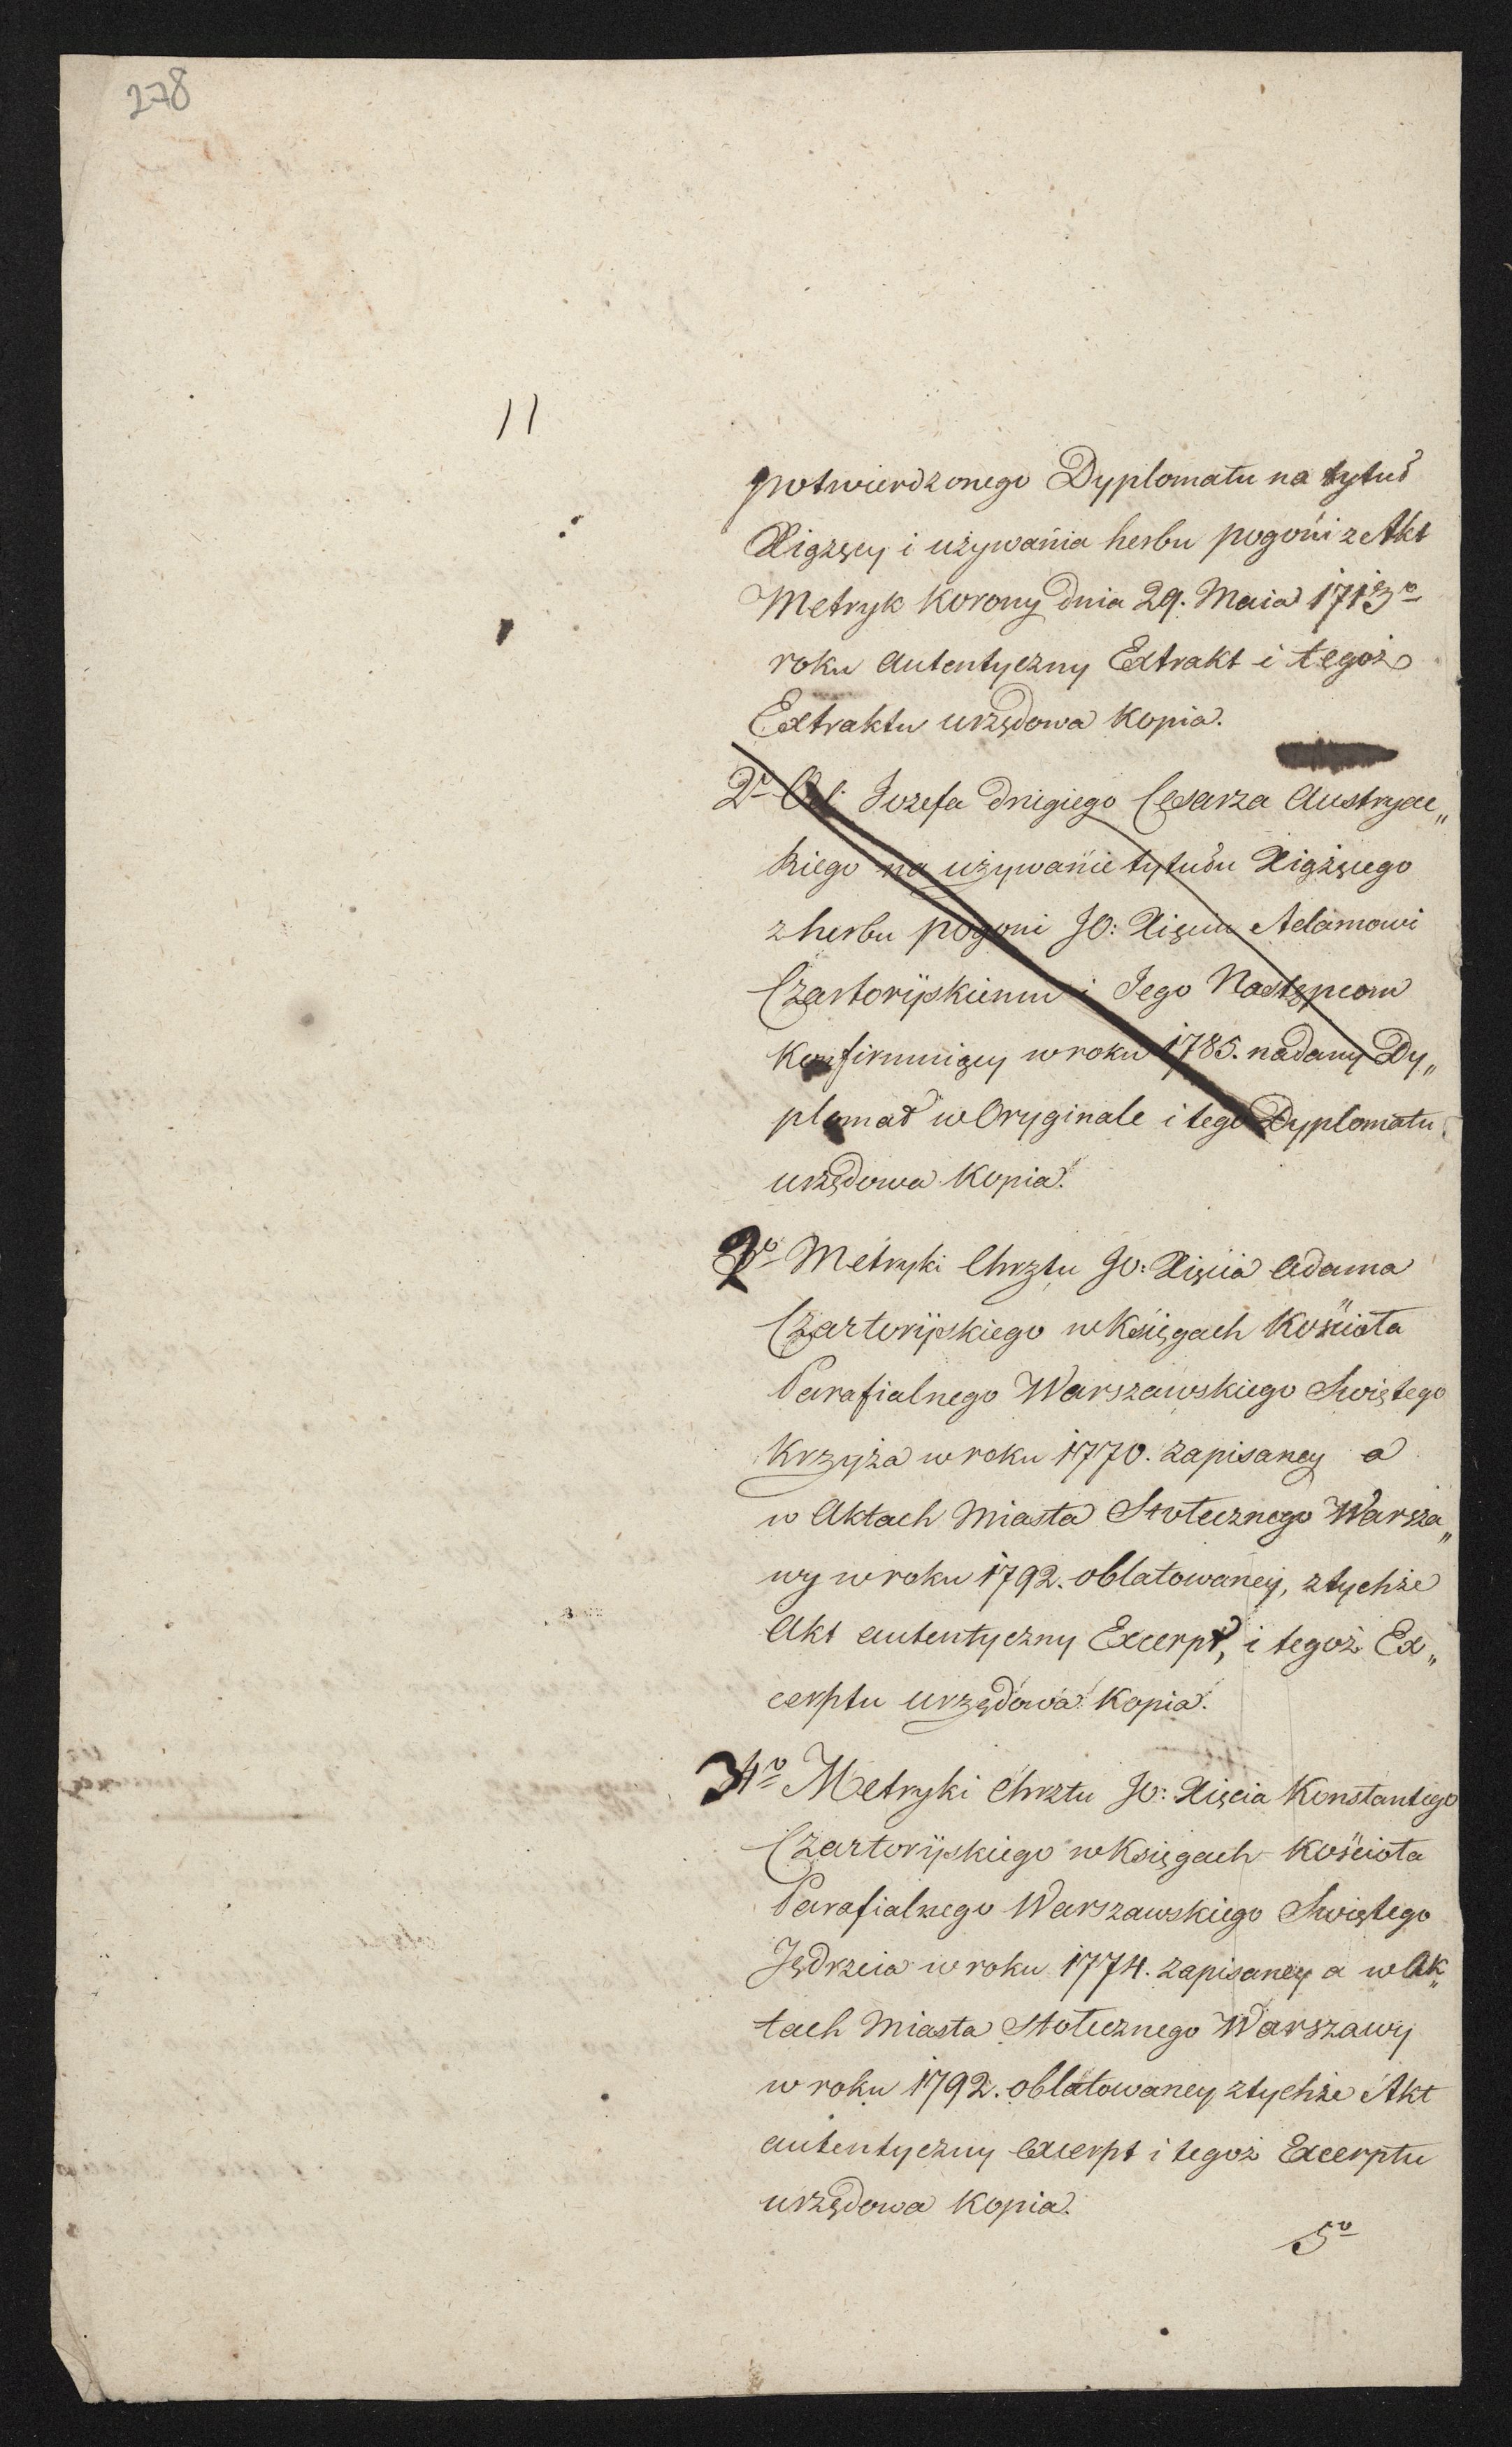 278
potwierdzonego Dyplomatu na tytuł
Xiążęcy i używania herbu pogoni z Akt
Metryk Korony dnia 29. Maia 1713º
roku autentyczny Extrakt i tegoż
Extraktu urzędowa Kopia.
2º Od Jozefa drugiego Cesarza Austryac„
kiego na używanie tytułu Xiążęcego
z herbu pogoni JO: Xięciu Adamowi
Czartoryiskiemu i Jego Następcom
Konfirmuiący w roku 1785. nadany Dy„
plomat w Oryginale i tego Dyplomatu
urzędowa Kopia.
2º Metryki Chrztu JO: Xięcia Adama
Czartoryiskiego w Księgach Kościoła
Parafialnego Warszawskiego Swiętego
Krzyża w roku 1770. zapisaney a
w Aktach Miasta Stołecznego Warsza„
wy w roku 1792. oblatowaney, z tychże
Akt autentyczny Excerpt, i tegoż Ex„
cerptu urzędowa Kopia.
3 4º Metryki Chrztu JO: Xięcia Konstantego
Czartoryiskiego w Księgach Kościoła
Parafialnego Warszawskiego Swiętego
Jędrzeia w roku 1774. zapisaney a w Ak„
tach Miasta Stołecznego Warszawy
w roku 1792. oblatowaney z tychże Akt
autentyczny excerpt i tegoż Excerptu
urzędowa Kopia.
5º